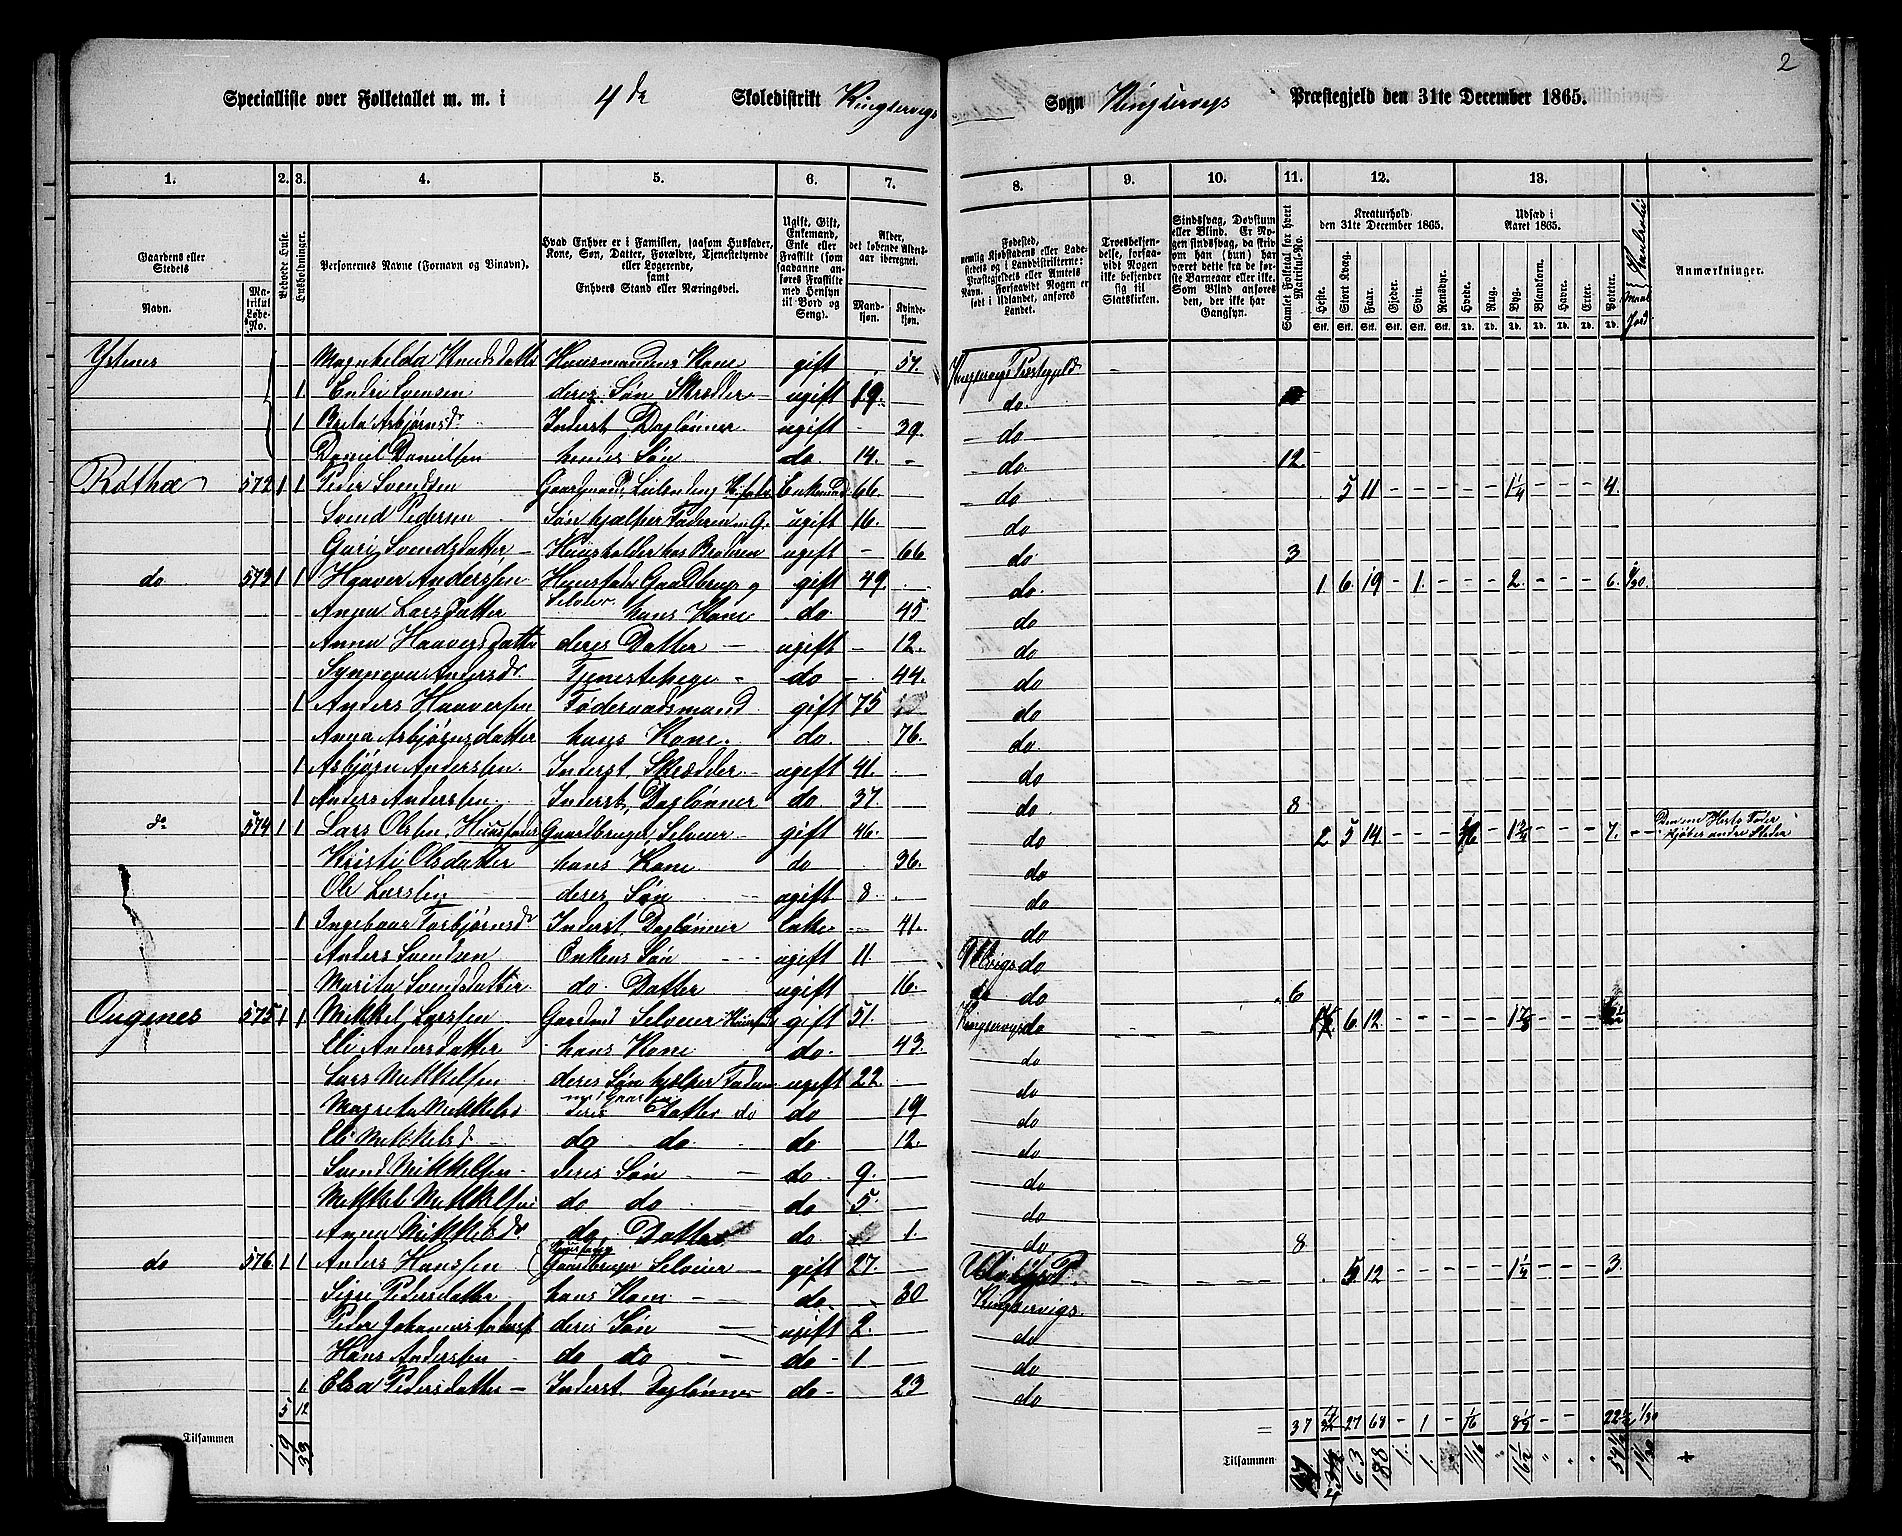 Specialliste over Folketallet m. m. i 4de Skoledistrikt Kingservigs Sogn Kingservigs Præstegjeld den 31te December 1865.
2
1. 2. 3. 4. 5. 6. 7. 8. 9. 10. 11. 12. 13.
Gaardens eller Stedets
Navn.
Matrikul Løbe-No.
Beboede Huse.
Husholdninger.
Personernes Navne (Fornavn og Tilnavn).
Hvad Enhver er i Familien, saasom Husfader, Kone, Søn, Datter, Forældre, Tjenestetyende eller Logerende, samt Enhvers Stand eller Næringsvei.
Ugift, Gift, Enkemand, Enke eller Fraskilt (som saadanne anføres Fraskilte med Hensyn til Bord og Seng).
Alder, det løbende Aldersaar iberegnet.
Mandkjøn.
Kvindekjøn.
Fødested,
Troesbekjendelse, forsaavidt Nogen ikke bekjender sig til Statskirken.
Samlet Folketal for hvert Matrikul-No.
Kreaturhold den 31te December 1865.
Heste. Stort Kvæg. Faar. Gjeder. Svin. Rensdyr.
Udsæd i Aaret 1865.
Hvede. Rug. Byg. Blandkorn. Havre. Erter. Poteter.
Anmærkninger.
Ystenes Magnhilda Knudsdatter Huusmandens Kone gift 57. Kingservigs Præstegjeld
1 Endri Svensen deres Søn Skrædder ugift 19. do
1 Brita Asbjørnsdr Inderst Daglønner ugift 39. do
Daniel Danielsen hendes Søn do 14. do 12.
572 1 1 Peder Svendsen Gaardmand, Leilending Enkemand 66. do 5 11 1 1/4 4.
Svend Pedersen Søn hjælper Faderen m G. ugift 16. do
Guri Svendsdatter Huusholder hos Broderen ugift 66 do 3
do 573 1 1 Haaver Andersen Huusfader Gaardbruger og Selveier. gift 49. do 1 6. 19 1. 2. 6. 1/30.
Anna Larsdatter hans Kone do 45 do
Anna Haaversdatter deres Datter ugift 12. do
Synneva Andersdr Tjenestepige do 44. do
1 Anders Haaversen Føderaadsmand gift 75 do
Anna Asbjørnsdatter hans Kone. do. 76. do
1 Asbjørn Andersen. Inderst Skrædder ugift 41. do
1 Anders Andersen Inderst, Daglønner do 37. do 8
do 574 1 1 Lars Olsen, Huusfader Gaardbruger, Selveier gift 46. do 2 5 14. 7.
Kristi Olsdatter hans Kone do 36. do
Ole Larsen deres Søn ugift 8. do
1 Ingebaar Torbjørnsdr Inderst, Daglønner Enke 41. do
Anders Svendsen Enkens Søn ugift 11. do
Marita Svendsdatter do. Datter ugift 16. do do 6
575 1 1 Mikkel Larsen Gaardmd Selveier Huusfader gift 51. Kingservigs do 6. 12.
Eli Andersdatter hans Kone do. 43. do
Lars Mikkelsen deres Søn hjælper Faderen med Gaarden ugift 22 do
Magreta Mikkelsd deres Datter do do 19 do
Eli Mikkelsd do do. do. 12. do
Svend Mikkelsen deres Søn do. 9. do
Mikkel Mikkelsen do do do 5. do
Anna Mikkelsdr do, Datter do 1. do 8
do 576. 1 1 Anders Hanssen Huusfader Gaardbruger Selveier gift 27. 5 12 1 1/4 3.
Sigri Pedersdatter hans Kone do 30 Kingservigs.
Peder Johannes Anders. deres Søn ugift 2. do
Hans Andersen do do do 1 do
1. Elsa Pedersdatter Inderst. Daglønner do 23 do
5 12
37 27 68 1 1/16 1/30
Tilsammen 19 33
Tilsammen 63 188 1. 1. 1/16 16 1/2